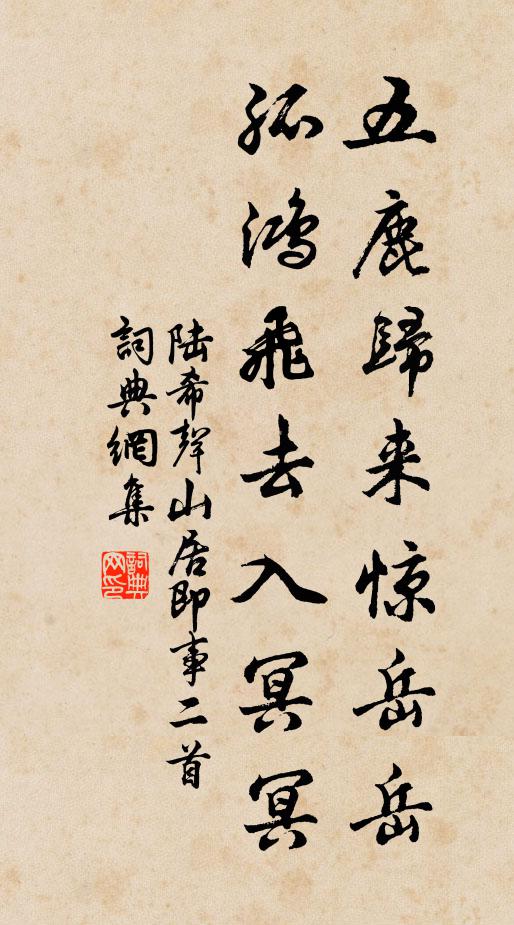 五鹿歸来惊岳岳
孤鸿飛去入冥冥
陆希聲山居即事二首
詞典網集
詞典网印